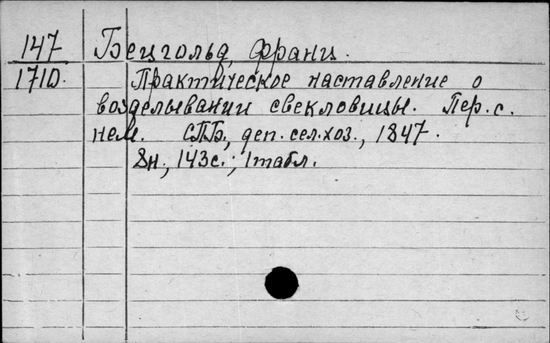 147 Бецгольд, Франц.
1710. Практическое наставление о
возделывании свекловицы. Пер. с.
нем. СПБ, деп. сел. хоз., 1847.
8н, 143с.; 1табл.